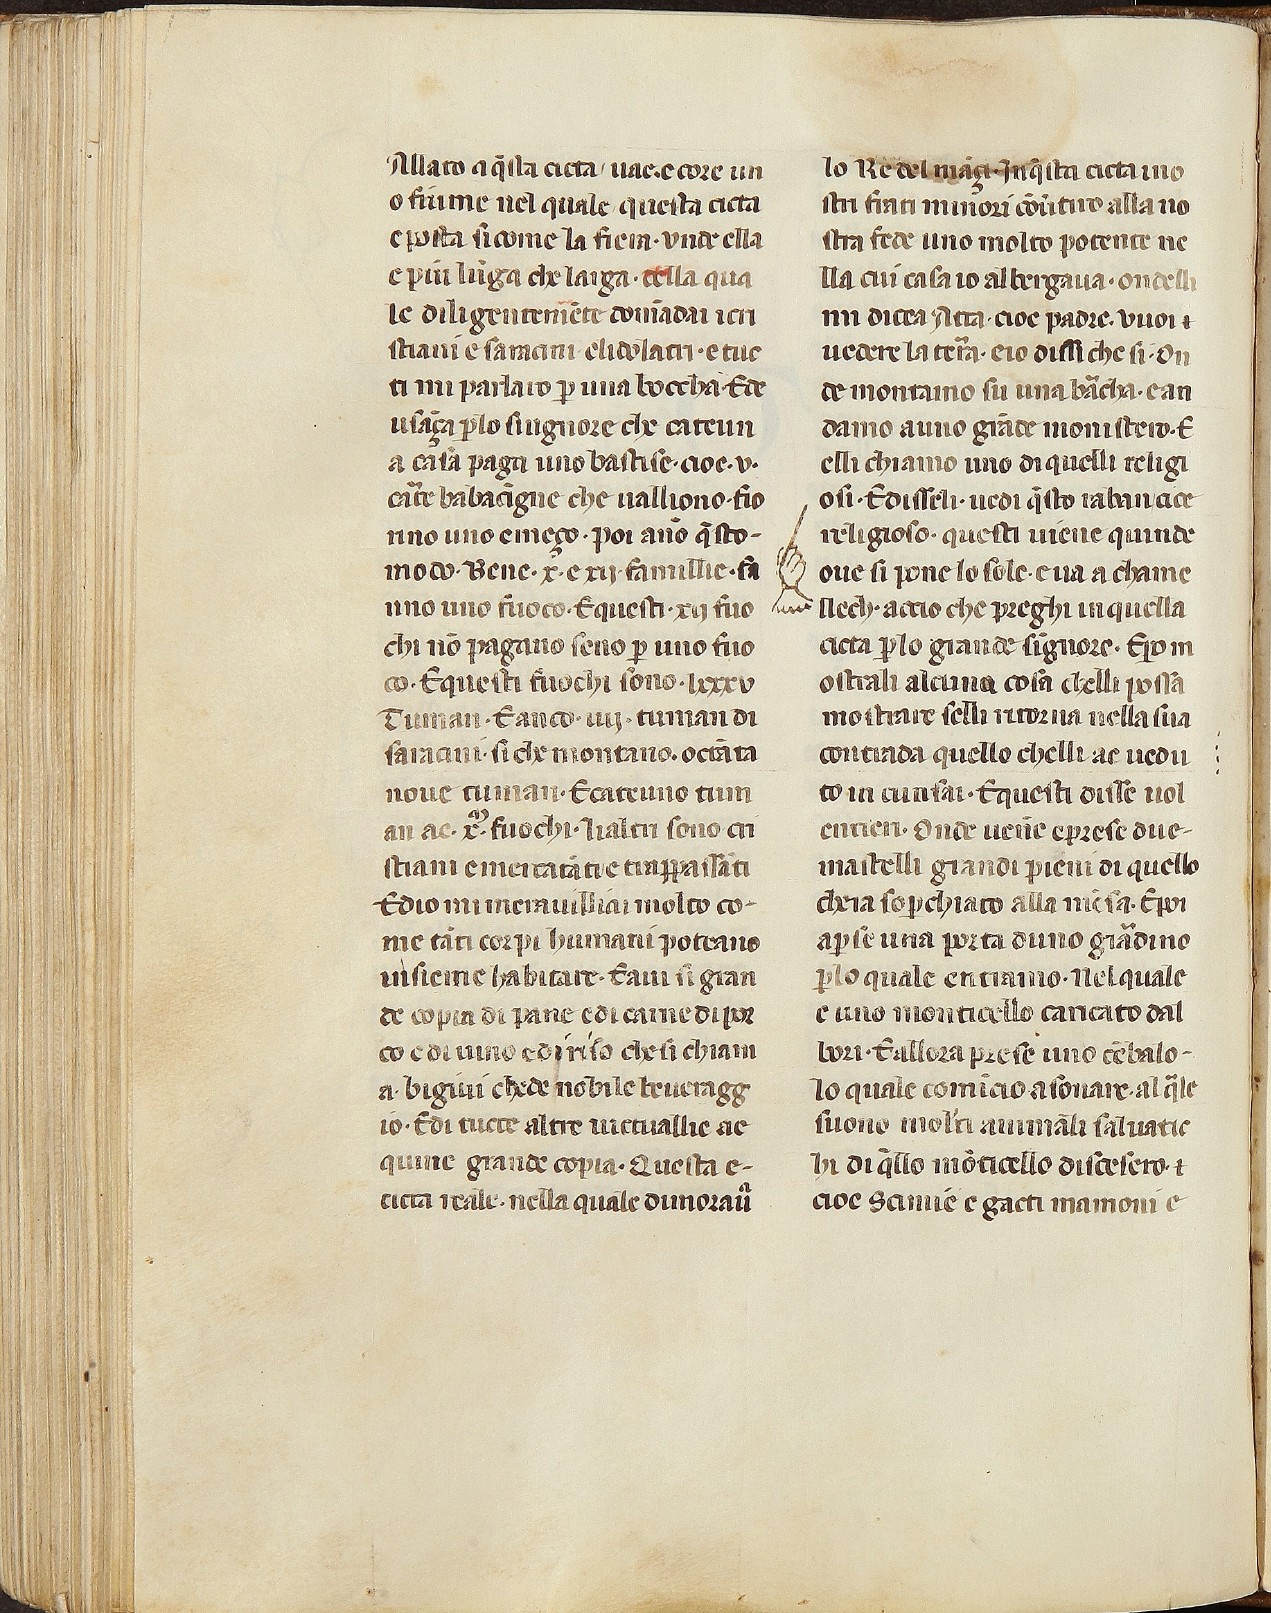 Allato a q̄sta cicta uae. e core un
o fiume nel quale questa cicta
e posta sicome la fiera. vnde ella
e piu lūga che larga. della qua
le diligentemēte domādai i cri
stiani e saracini. elidolatri. e tuc
ti mi parlaro p una boccha. Ede
usāça plo singnore che cateun
a casa paga uno bastise. cioe. v.
carte babacīgne che ualliono. fio
rino uno e meço. poi ano q̄sto-
modo. Bene. x. e xij. famillie. fā
nno uno fuoco. E questi. xij fuo
chi nō pagano seno p uno fuo
co. E questi fuochi sono. lxxxv
Tuman. E anco. iiij. tuman di
saracini. si che montano. octāta
noue tuman. E cateuno tum
an ae. x. fuochi. lialtri sono cri
stiani e mercatāti e trappassāti
Ed io mi merauilliai molto co-
me tāti corpi humani poteano
insieme habitare. E aui si gran
de copia di pane e di carne di por
co e di uino e di riso che si chiam
a. bigini ched e nobile beueragg
io. E di tucte altre uictuallie ae
quine grande copia. Questa e-
cicta reale. nella quale dimoraū
lo Re del māçi. In q̄sta cicta iiij
stri frati minori cōūtiro alla no
stra fede uno molto potente ne
lla cui casa io albergaua. ondelli
mi dicea Atta. cioe padre. vuoi t
uedere la terra. e io dissi che si. On
de montamo su una bācha. e an
damo a uno grāde monistero. E
elli chiamo uno di quelli religi
osi. E disseli. uedi q̄sto raban cioe
religioso. questi uiene quinde
oue si pone lo sole. e ua a chame
llech. accio che preghi in quella
cicta plo grande signore. Epo m
ostrali alcuna cosa chelli possa
mostrare selli ritorna nella sua
contrada quello chelli ae uedu
to in cunsai. E questi disse uol
entieri. Onde uene e prese due-
mastelli grandi pieni di quello
chera sopchiato alla mēsa. E poi
apse una porta duno giardino
plo quale entramo. Nel quale
e uno monticello caricato dal
bori. E allora prese uno cēbalo-
lo quale comīcio a sonare. al q̄le
suono molti animali saluatic
hi di q̄llo mōticello discesero. t
cioe Scimie e gacti mamoni e